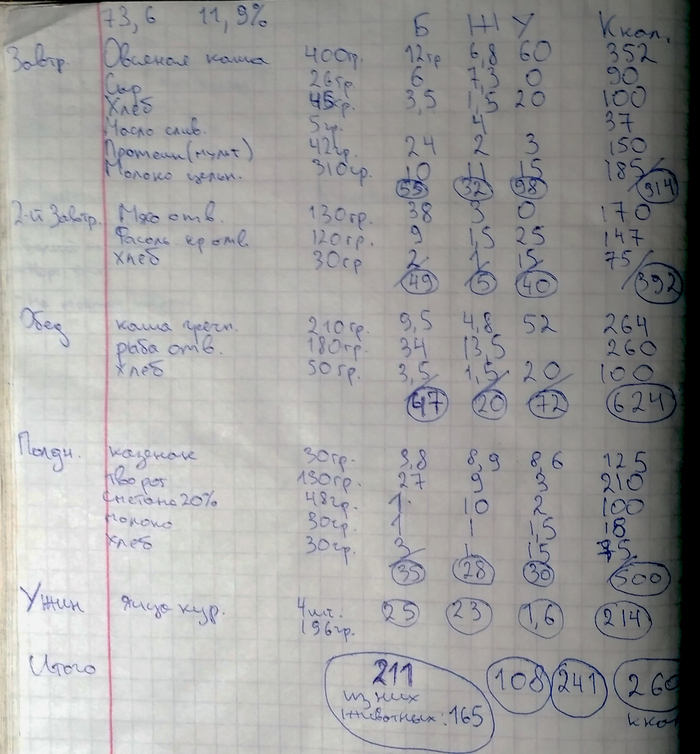 73,6 11,9%
Б Ж У Ккал.
Завтр. Овсяная каша 400гр. 12гр 6,8 60 352
Сыр 26гр. 6 7,3 0 90
Хлеб 45гр. 3,5 1,5 20 100
Масло слив. 5гр. 4 37
Протеин (мульт) 42гр. 24 2 3 150
Молоко цельн. 310гр. 10 11 15 185/
55 32 98 914
2-й Завтр. Мясо отв. 130гр. 38 3 0 170
Фасоль кр отв. 120гр. 9 1,5 25 147
хлеб 30гр 2 1 15 75/
49 5 40 392
Обед каша гречн. 210гр. 9,5 4,8 52 264
рыба отв. 180гр. 34 13,5 260
хлеб 50гр. 3,5 1,5 20 100
47 20 72 624
Полдн. казенак 30гр. 3,8 8,9 8,6 125
творог 130гр. 27 9 3 210
сметана 20% 48гр. 1 10 2 100
молоко 30гр. 1 1 1,5 18
хлеб 30гр. 3 1 15 75
35 28 30 500
Ужин яйцо кур. 4шт. 25 23 1,6 214
196гр.
Итого 211 108 241 260
из них
животных: 165 ккал